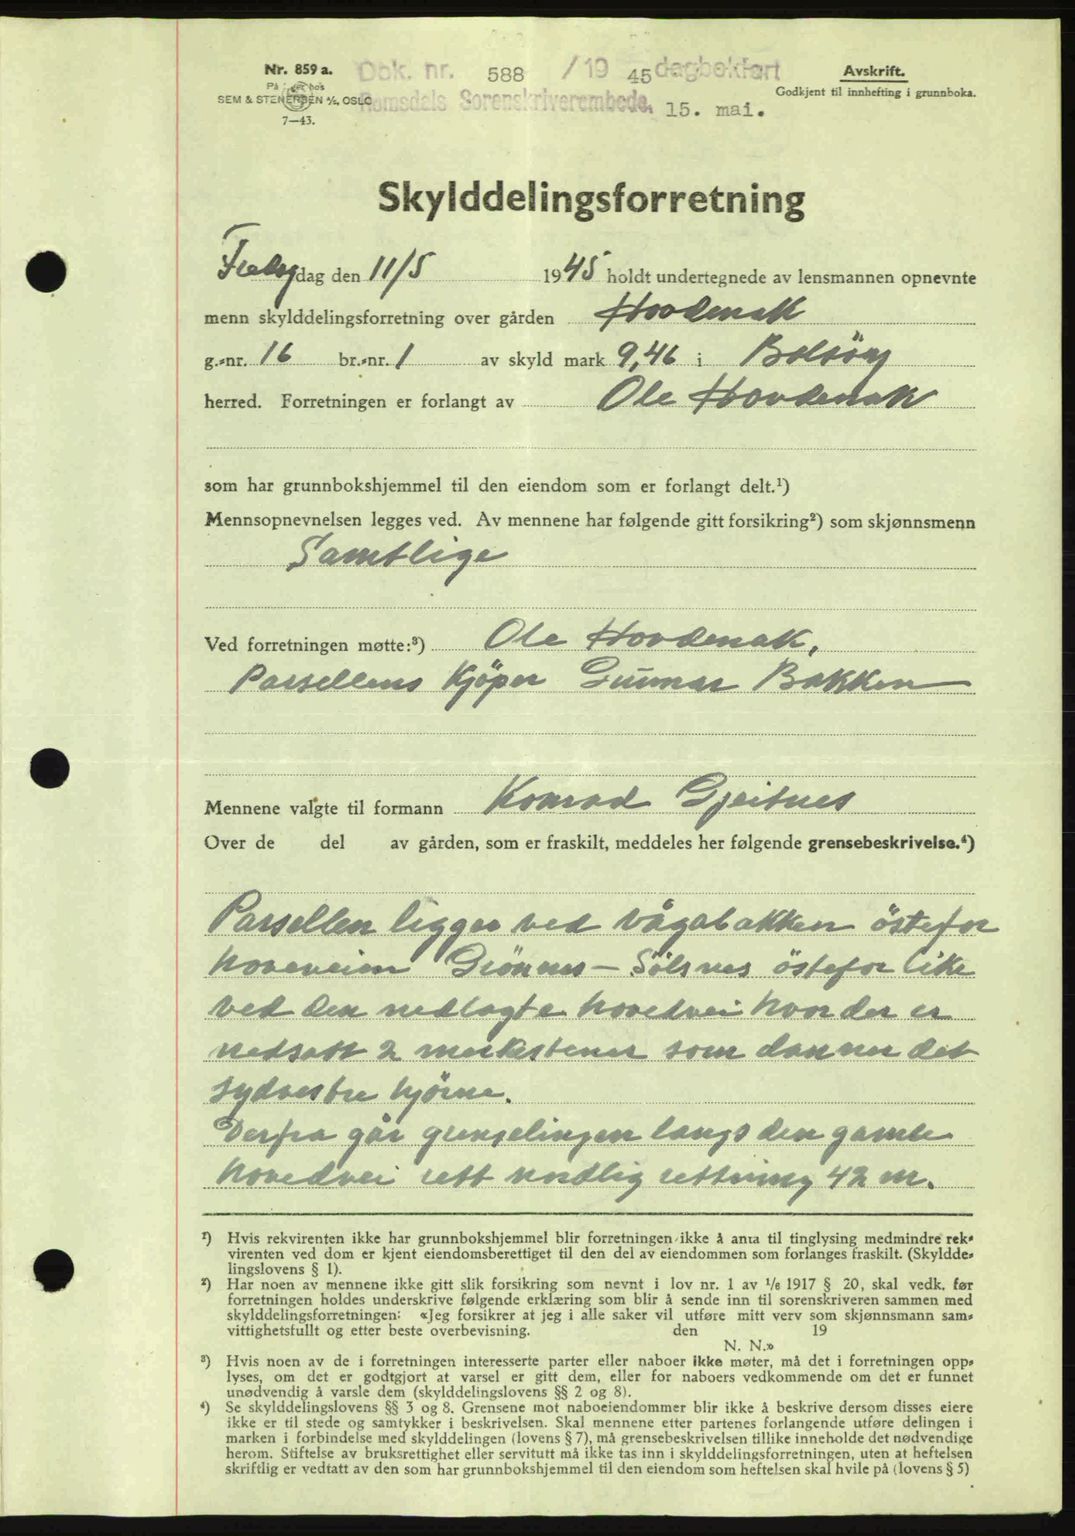 Nr. 859 a.
På lager hos
SEM & STENERSEN A/S, OSLO
7—43.
Dok. nr. 588 /19 45 dagbokført
Romsdals Sorenskriverembede, 15. mai.
Avskrift.
Godkjent til innhefting i grunnboka.
Skylddelingsforretning
Fredag dag den 11/5 1945 holdt undertegnede av lensmannen opnevnte
menn skylddelingsforretning over gården Hovdenak
g.-nr. 16 br.-nr. 1 av skyld mark 9,46 i Bolsöy
herred. Forretningen er forlangt av Ole Hovdenak
som har grunnbokshjemmel til den eiendom som er forlangt delt.¹)
Mennsopnevnelsen legges ved. Av mennene har følgende gitt forsikring²) som skjønnsmenn
Samtlige
Ved forretningen møtte:³) Ole Hovdenak,
Parsellens kjöper Gunnar Bakken
Mennene valgte til formann Konrad Gjeitnes
Over de del av gården, som er fraskilt, meddeles her følgende grensebeskrivelse.⁴)
Parsellen ligger ved Vågabakken östefor
hoveveien Grönnes – Sölsnes östefor like
ved den nedlagte hovedvei hvor der er
nedsatt 2 merkestener som danner det
sydvestre hjörne.
Derfra går grenselingen langs den gamle
hovedvei rett nordlig rettning 42 m.
¹) Hvis rekvirenten ikke har grunnbokshjemmel blir forretningen ikke å anta til tinglysing medmindre rek-
virenten ved dom er kjent eiendomsberettiget til den del av eiendommen som forlanges fraskilt. (Skyldde-
lingslovens § 1).
²) Har noen av mennene ikke gitt slik forsikring som nevnt i lov nr. 1 av 1/6 1917 § 20, skal vedk. før
forretningen holdes underskrive følgende erklæring som blir å sende inn til sorenskriveren sammen med
skylddelingsforretningen: «Jeg forsikrer at jeg i alle saker vil utføre mitt verv som skjønnsmann sam-
vittighetsfullt og etter beste overbevisning. den 19
N. N.»
³) Hvis noen av de i forretningen interesserte parter eller naboer ikke møter, må det i forretningen opp-
lyses, om det er godtgjort at varsel er gitt dem, eller for naboers vedkommende om det er funnet
unødvendig å varsle dem (skylddelingslovens §§ 2 og 8).
⁴) Se skylddelingslovens §§ 3 og 8. Grensene mot naboeiendommer blir ikke å beskrive dersom disses eiere
ikke er til stede og samtykker i beskrivelsen. Skal mennene etter partenes forlangende utføre delingen i
marken i forbindelse med skylddelingen (lovens § 7), må grensebeskrivelsen tillike inneholde det nødvendige
herom. Stiftelse av bruksrettighet eller servitutt må ikke tas inn i skylddelingsforretningen, uten at heftelsen
skriftlig er vedtatt av den som har grunnbokshjemmel til den eiendom som heftelsen skal hvile på (lovens § 5)